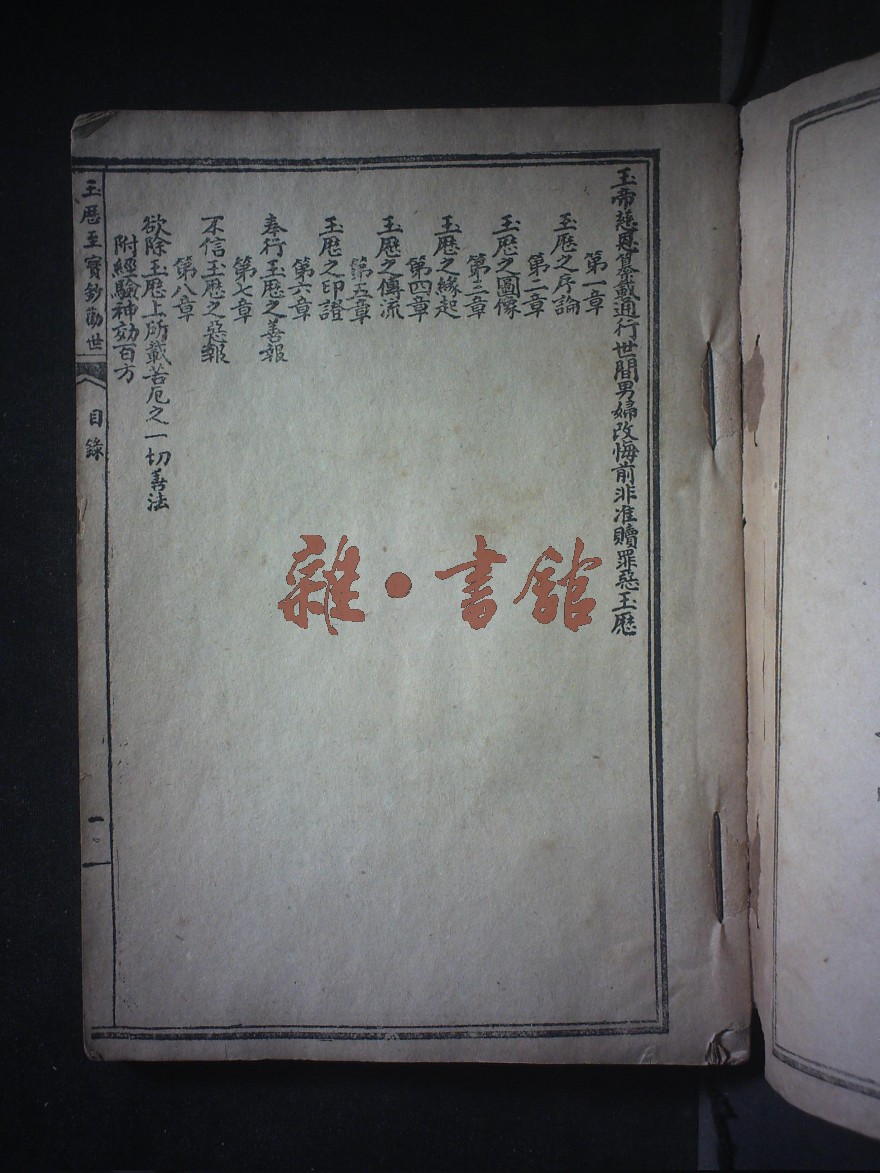 玉帝慈恩纂載通行世間男婦改悔前非准贖罪惡玉歷
第一章
玉歷之序論
第二章
玉歷之圖像
第三章
玉歷之緣起
第四章
玉歷之傳流
第五章
玉歷之印證
第六章
奉行玉歷之善報
第七章
不信玉歷之惡報
第八章
欲除玉歷上所載苦厄之一切善法
附經驗神効百方
玉歷至寶鈔勸世
目錄
一
雜·書館